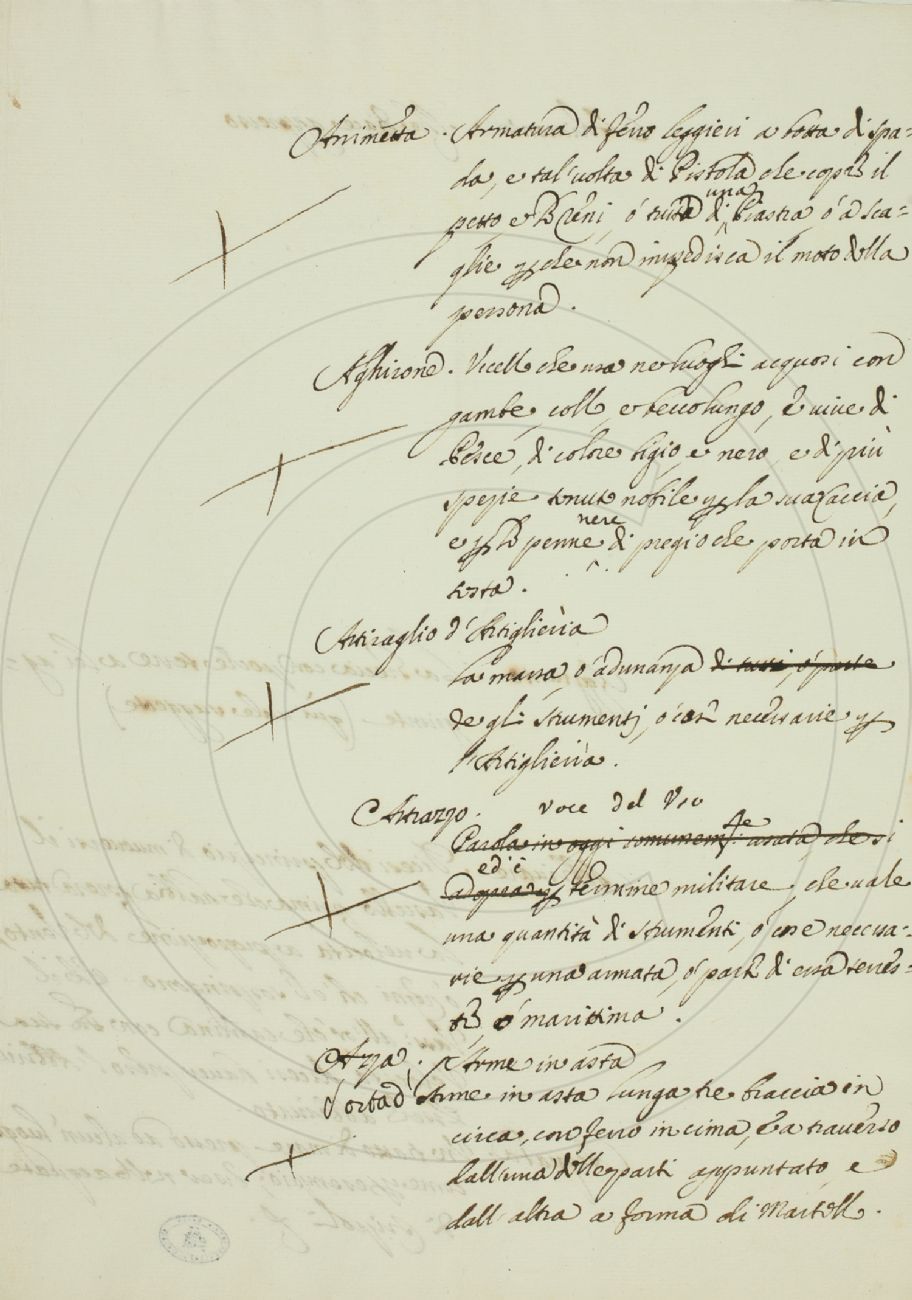 Animetta. Armatura di ferro leggieri a botta di spa=
da, e tal'volta di Pistola che copre il
petto, e Reni, ó tutta di una Piastra ó a sca=
glie p che non impedisca il moto della
persona.
Aghirone. Vccello che usa ne luoghi acquosi con
gambe, collo, e becco lungo, e vive di
Pesce, di colore bigio, e nero, e di più
spezie tenuto nobile p la sua Caccia,
e p le penne nere di pregio che porta in
testa.
Attiraglio d'Artiglieria
La massa, o' adunanza di tutti, o' parte
de gli strumenti, o' cose necessarie p
l'Artiglieria.
Attrazzo. Voce del Vso
Parola in oggi comunemte usata, che si
adopra p ed' è termine militare, che vale
una quantità di strumenti, o' cose necessa=
rie p una armata, o' parte di essa terres=
tre, o' marittima.
Azza. Arme in asta
Arme in asta lunga tre braccia in
circa, con ferro in cima, e a traverso
dall'una delle parti appuntato, e
dall'altra a forma di Martello.